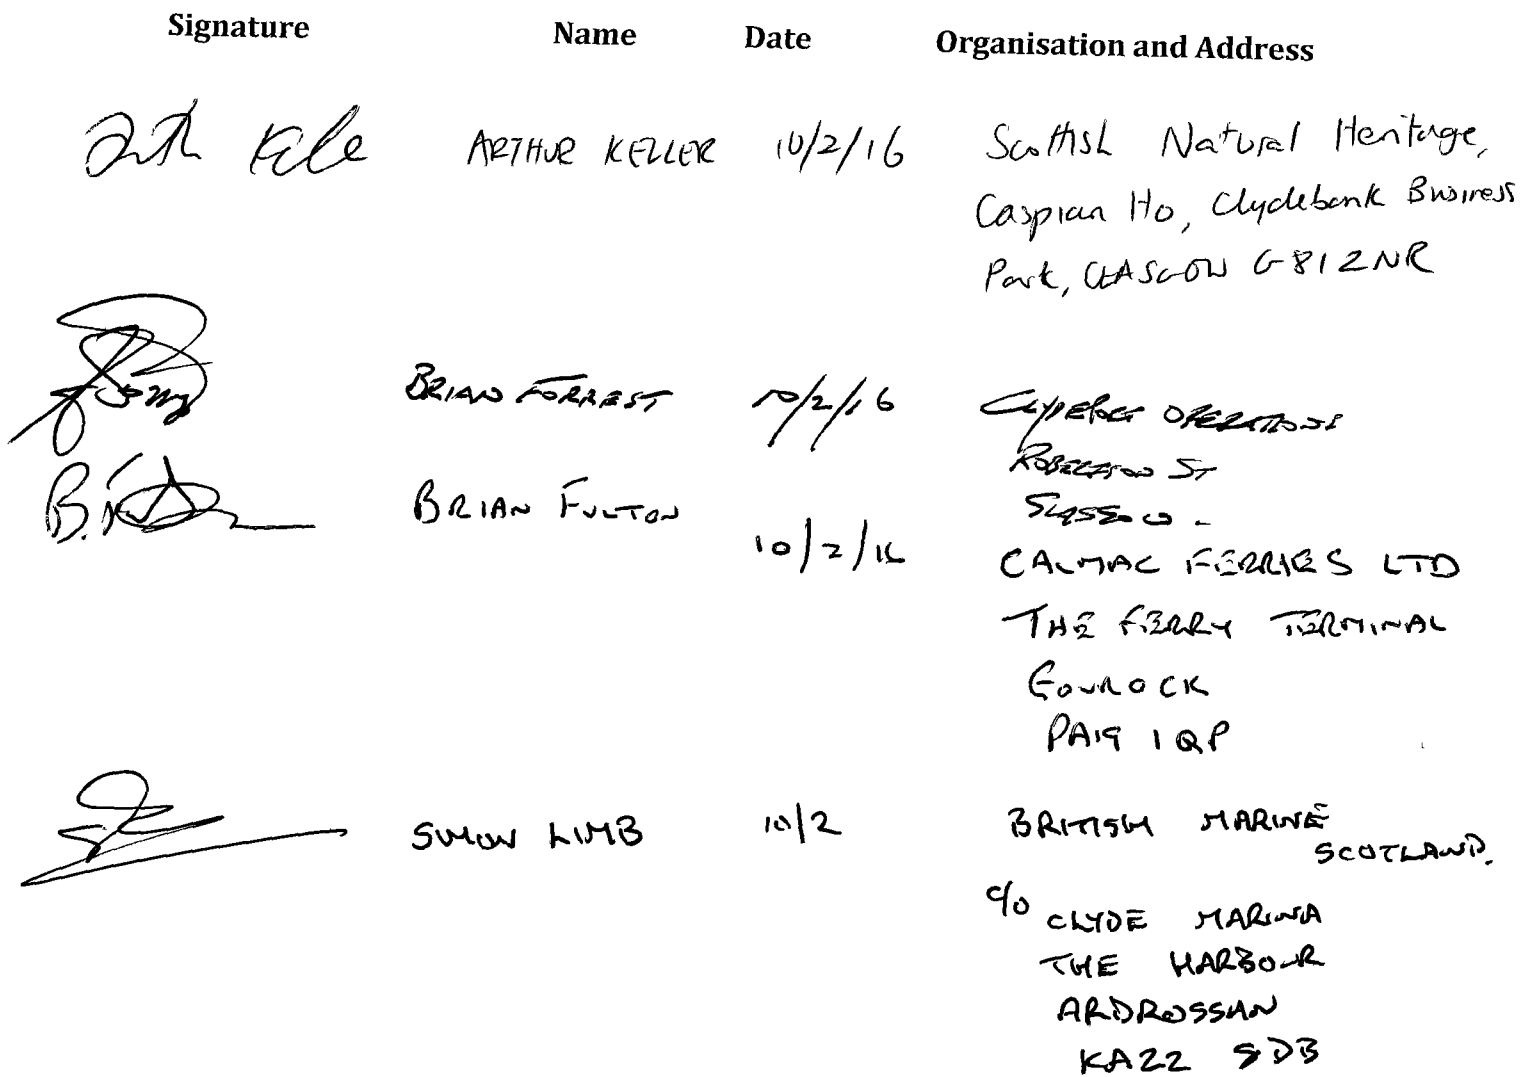 Signature Name Date Organisation and Address
ARTHUR KELLER 10/2/16 Scottish Natural Heritage,
Caspian Ho, Clydebank Business
Park, GLASGOW G81 2NR
BRIAN FORREST 10/2/16 CLYDEPORT OPERATIONS
ROBERTSON ST
GLASGOW.
BRIAN FULTON
10/2/16
CALMAC FERRIES LTD
THE FERRY TERMINAL
GOUROCK
PA19 1QP
SIMON LIMB 10/2 BRITISH MARINE
SCOTLAND.
c/o CLYDE MARINA
THE HARBOUR
ARDROSSAN
KA22 8DB